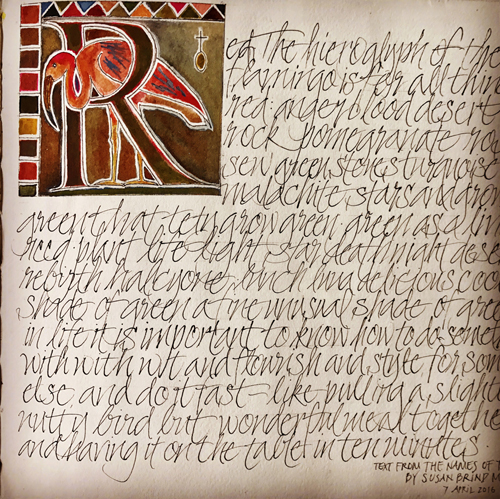 Red. The hieroglyph of the
flamingo is for all thin
red: anger blood desert
rock pomegranate
green, stones turquoise
malachite, stars and
green that tety grow green green as a
reed. plant life light star death night dese
rebirth halcyone, which delicious
shade of green a fine unusual shade of gre
in life it is important to know how to do some
with with wit and flourish and style for som
else, and do it fast – like pulling a sligh
nutty bird but wonderful meal togethe
and having it on the table in ten minutes
TEXT FROM THE NAMES OF T
BY SUSAN BRIND M
7 APRIL 2016